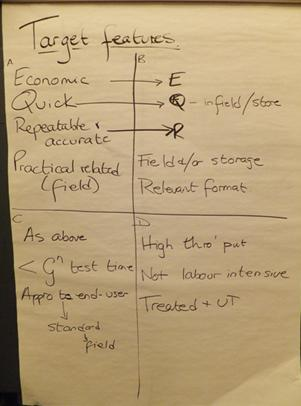 Target features.
A
Economic
Quick
Repeatable &
accurate
Practical related
(field)
B
E
Q - infield/store
R
Field &/or storage
Relevant format
C
As above
< Gⁿ test time
Appro to end-user
standard
field
D
High thro' put
Not labour intensive
Treated + UT